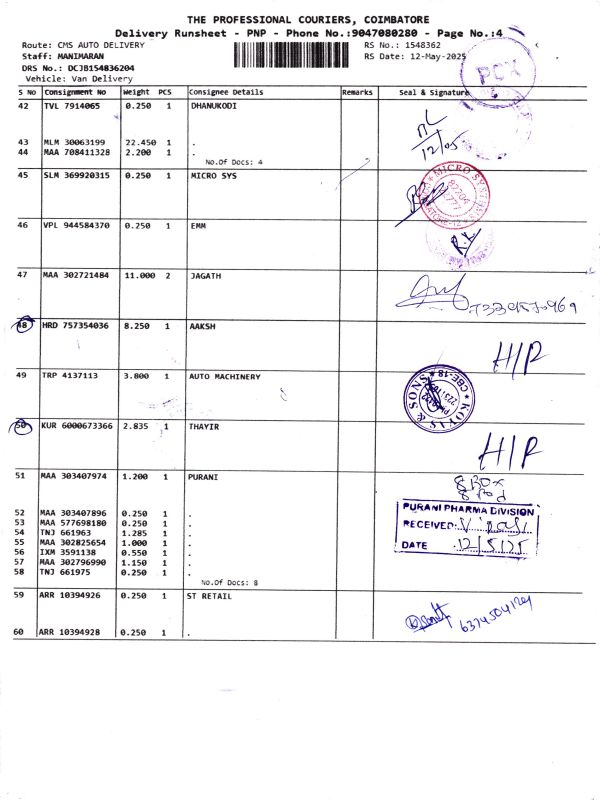 THE PROFESSIONAL COURIERS, COIMBATORE
Delivery Runsheet - PNP - Phone No.:9047080280 - Page No.:4
Route: CMS AUTO DELIVERY RS No.: 1548362
Staff: MANIMARAN RS Date: 12-May-2025
DRS No.: DCJB154836204
Vehicle: Van Delivery
PCX
S No Consignment No Weight PCS Consignee Details Remarks Seal & Signature
42 TVL 7914065 0.250 1 DHANUKODI
12/05
43 MLM 30063199 22.450 1 .
44 MAA 708411328 2.200 1 .
No.Of Docs: 4
45 SLM 369920315 0.250 1 MICRO SYS
MICRO SYSTEMS
46 VPL 944584370 0.250 1 EMM
R.K
47 MAA 302721484 11.000 2 JAGATH
48 HRD 757354036 8.250 1 AAKSH
H/P
49 TRP 4137113 3.800 1 AUTO MACHINERY
KOYAS & SONS CBE-18
50 KUR 6000673366 2.835 1 THAYIR
H/P
51 MAA 303407974 1.200 1 PURANI
8 Box
8 Pod
52 MAA 303407896 0.250 1 .
53 MAA 577698180 0.250 1 .
54 TNJ 661963 1.285 1 .
55 MAA 302825654 1.000 1 .
56 IXM 3591138 0.550 1 .
57 MAA 302796990 1.150 1 .
58 TNJ 661975 0.250 1 .
No.Of Docs: 8
PURANI PHARMA DIVISION
RECEIVED:
DATE 12/5/25
59 ARR 10394926 0.250 1 ST RETAIL
6374504124
60 ARR 10394928 0.250 1 .